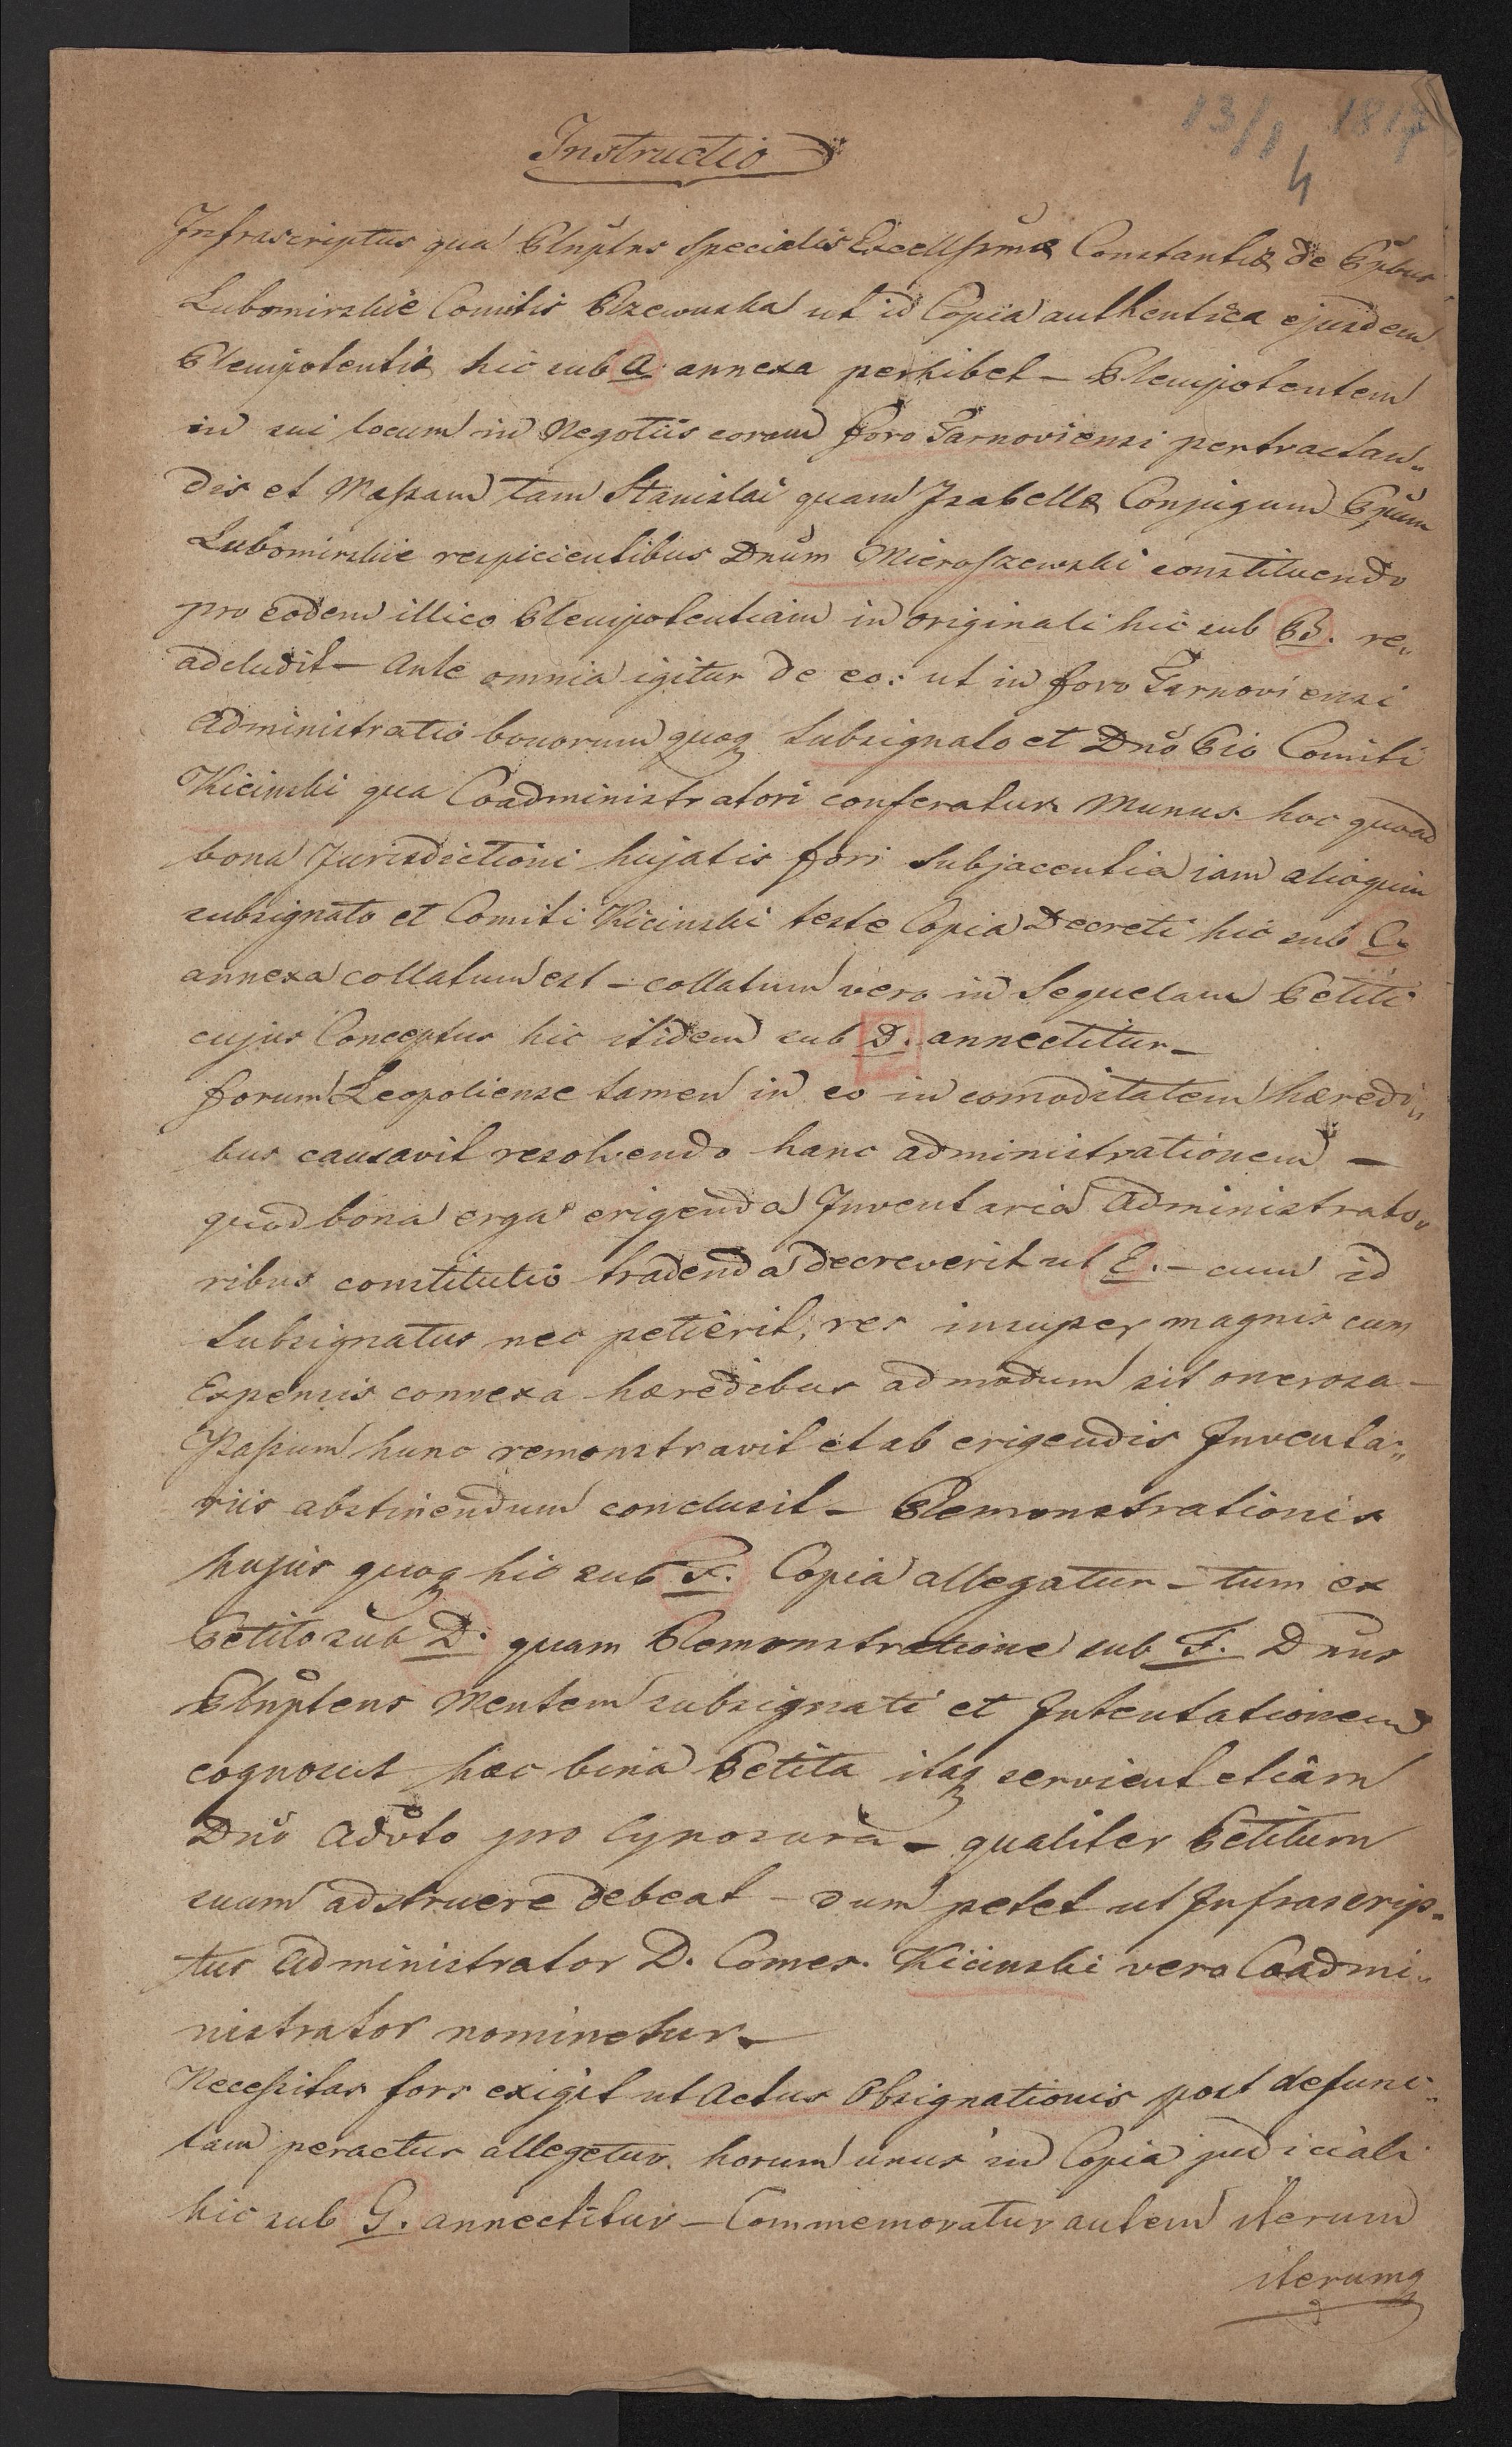 13/1 1817
4
Instructio
Infrascriptus qua Plnptns specialis Excellssmæ Constantiæ de Ppbus
Lubomirskie Comitis Rzewuska ut id Copia authentica ejusdem
Plenipotentiæ hic sub A annexa perhibet – Plenipotentem
in sui locum in Negotiis coram foro Tarnoviensi pertractan„
dis et Massam tam Stanislai quam Isabellæ Conjugum Ppum
Lubomirskie respicientibus Dnum Mieroszewski constituendo
pro eodem illico Plenipotentiam in originali hic sub B. re„
adcludit – Ante omnia igitur de eo: ut in foro Tarnoviensi
Administratio bonorum quoq subsignato et Dno Pio Comiti
Kicinski qua Coadministratori conferatur Munus hoc quoad
bona Jurisdictioni hujatis fori subjacentia iam alioquin
subsignato et Comiti Kicinski teste Copia Decreti hic sub C.
annexa collatum est – collatum vero in sequelam Petiti
cujus Conceptus hic itidem sub D. annectitur –
forum Leopoliense tamen in eo incomoditatem hæredi„
bus causavit resolvendo hanc administrationem –
quod bona erga erigenda Inventaria Administrato„
ribus constitutio tradenda decreverit ut E. – cum id
subsignatus nec petierit, res insuper magnis cum
Expensis connexa hæredibus admodum sit onerosa –
Passum hunc remonstravit et ab erigendis Inventa„
riis abstinendum conclusit – Remonstrationis
hujus quoq hic sub F. Copia allegatur – tum ex
Petito sub D. quam Remonstratione sub F. Dnus
Plnptens Mentem subsignati et Intentationem
cognoscet hæc bina Petita itaq servient etiam
Dno Advto pro Cynosura – qualiter Petitum
suum adstruere debeat – dum petet ut Infrascrip„
tus Administrator D. Comes. Kicinski vero Coadmi„
nistrator nominetur –
Necessitas fors exiget ut Actus Obsignationis post defunc„
tam peractus allegetur. horum unus in Copia judiciali
hic sub G. annectitur – Commemoratur autem iterum
iterumq